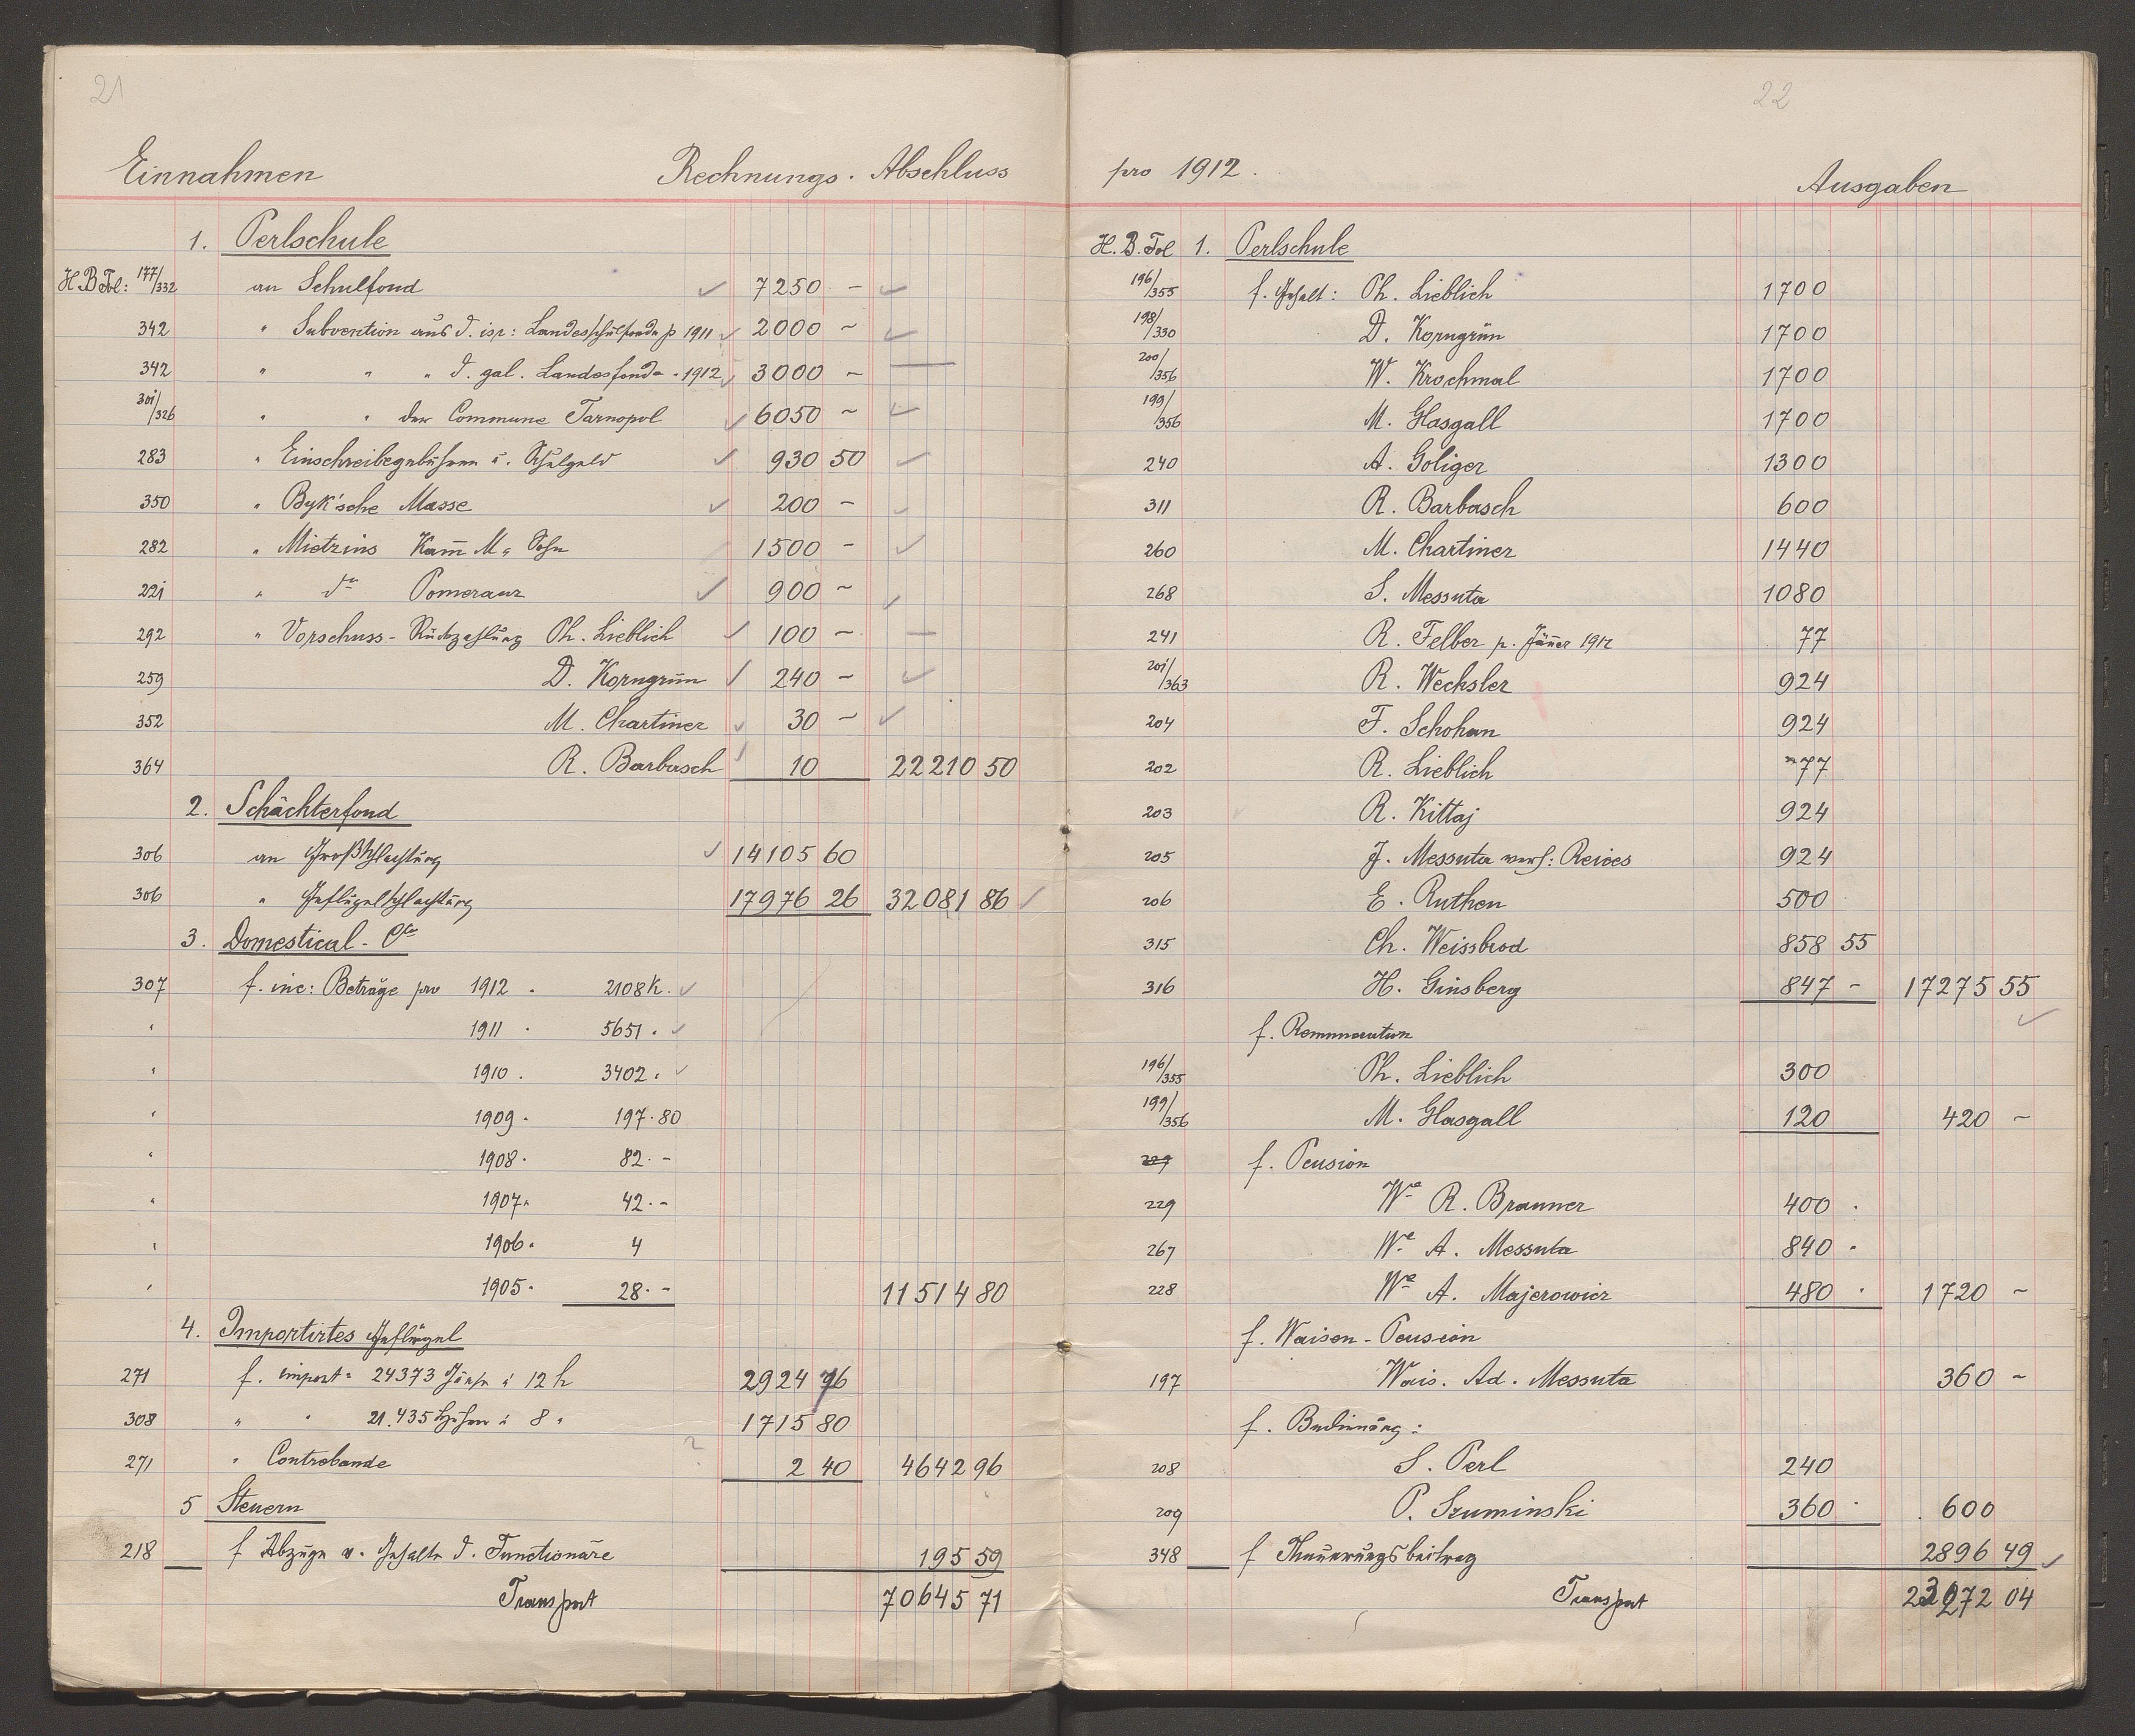 21
Einnahmen Rechnungs. Abschluss
1. Perlschule
H.B.Fol: 177/332 an Schulfond 7250 –
342 " Subvention aus d. isr: Landesschulfonde p 1911 2000 –
342 " " " d. gal. Landesfonde " 1912 3000 –
301/326 " " der Commune Tarnopol 6050 –
283 " Einschreibegebühren u. Schulgeld 930 50
350 " Byk'sche Masse 200 –
282 " Mietzins Kam̄ M. Sohn 1500 –
221 " dto Pomeranz 900 –
292 " Vorschuss-Rückzahlung Ph. Lieblich 100 –
259 D. Korngrün 240 –
352 M. Chartiner 30 –
364 R. Barbasch 10 22210 50
2. Schächterfond
306 an Großschlachtung 14105 60
306 " Geflügelschlachtung 17976 26 32081 86
3. Domestical - Cto
307 f. inc: Beträge pro 1912 . 2108 K.
" 1911 . 5651 .
" 1910 . 3402 .
" 1909 . 197.80
" 1908 . 82.–
" 1907 . 42.–
" 1906 . 4
" 1905 . 28.– 11514 80
4. Importirtes Geflügel
271 f. import. 24373 Gänse à 12 h 2924 76
308 " " 21.435 Hühner à 8 " 1715 80
271 " Contrebande 2 40 4642 96
5 Steuern
218 f Abzüge v. Gehalte d. Functionäre 195 59
Transport 70645 71
22
pro 1912. Ausgaben
H.B.Fol 1. Perlschule
196/355 f. Gehalt: Ph. Lieblich 1700
198/330 D. Korngrün 1700
200/356 W. Krochmal 1700
199/356 M. Glasgall 1700
240 A. Goliger 1300
311 R. Barbasch 600
260 M. Chartiner 1440
268 S. Messuta 1080
241 R. Felber p. Jänner 1912 77
201/363 R. Wechsler 924
204 F. Schohan 924
202 R. Lieblich 77
203 R. Kittaj 924
205 J. Messuta verh: Reises 924
206 E. Ruthen 500
315 Ch. Weissbrod 858 55
316 H. Ginsberg 847 – 17275 55
f. Remuneration
196/355 Ph. Lieblich 300
199/356 M. Glasgall 120 420 –
229 f. Pension
229 We R. Brauner 400 .
267 We A. Messuta 840 .
228 We A. Majerowicz 480 . 1720 –
f. Waisen-Pension
197 Wais. Ad. Messuta 360 –
f. Bedienung:
208 S. Perl 240
209 P. Szuminski 360 . 600
348 f Theuerungsbeitrag 2896 49
Transport 23272 04